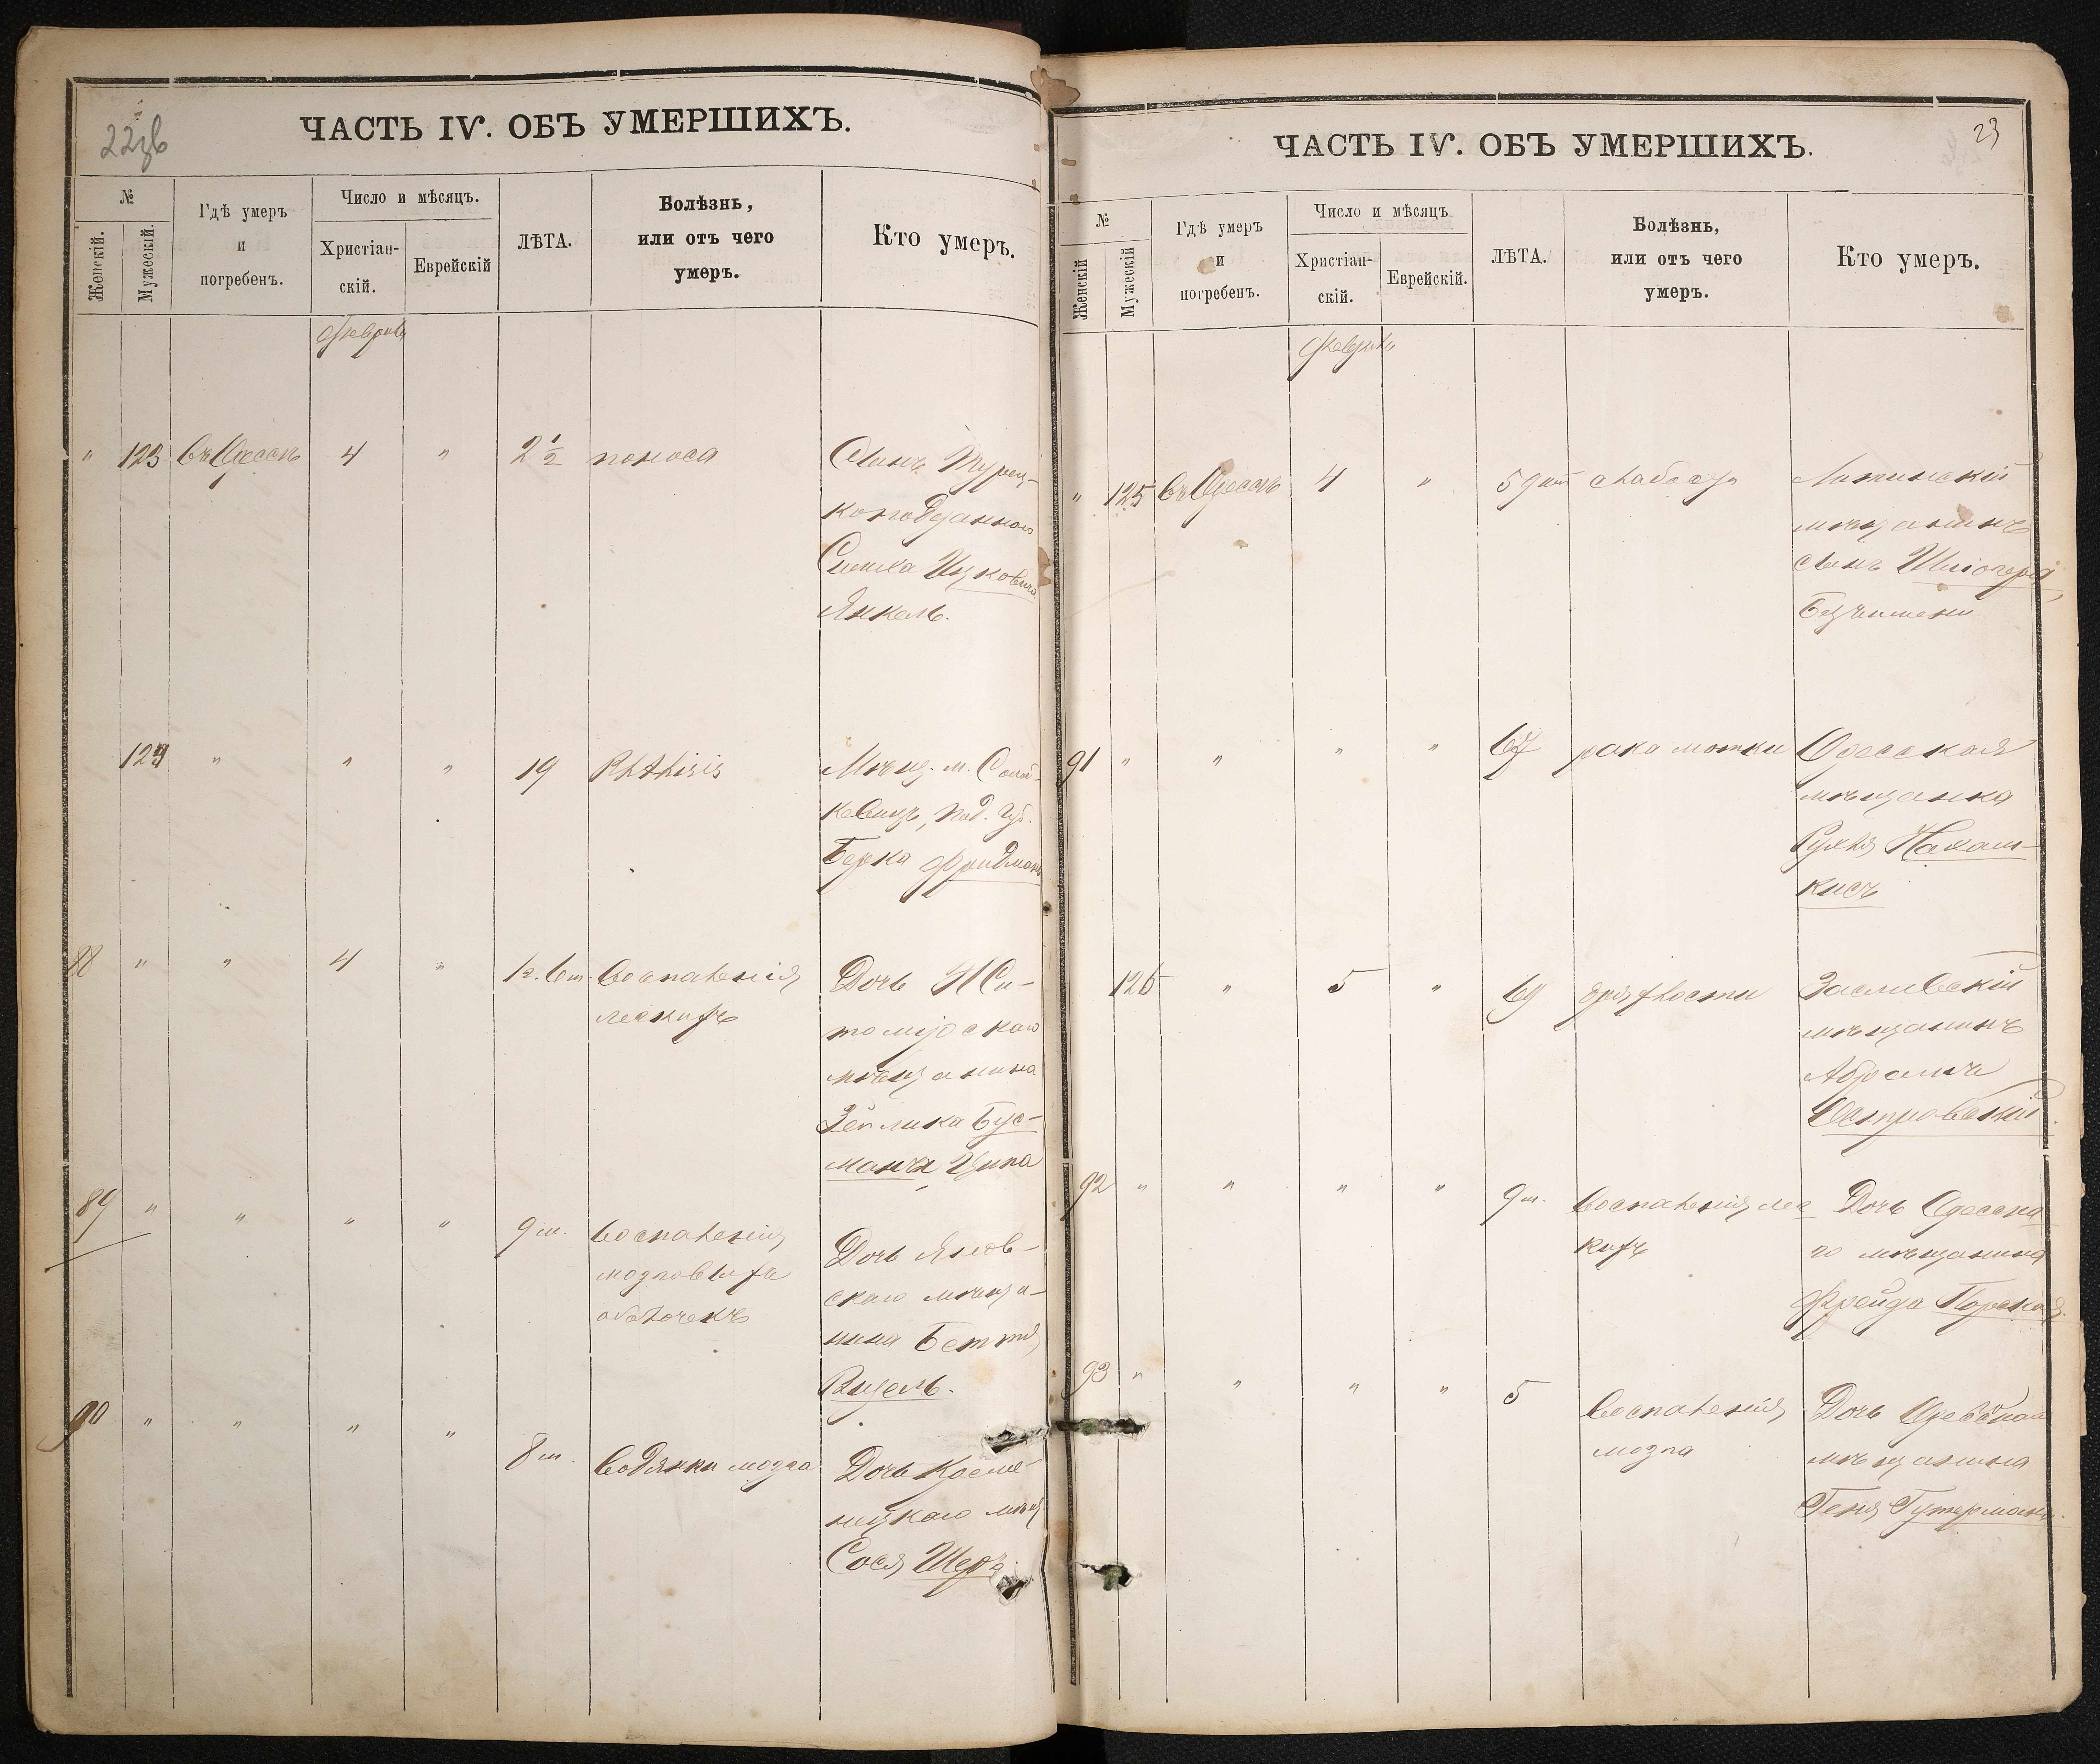 22зв
ЧАСТЬ IV. ОБЪ УМЕРШИХЪ.
№
Женскій.
Мужескій.
Гдѣ умеръ
и
погребенъ.
Число и мѣсяцъ.
Христіан-
скій.
Еврейскій
ЛѢТА.
Болѣзнь,
или отъ чего
умеръ.
Кто умеръ.
Февраль
" 123 въ Одессѣ 4 " 2 1/2 поноса Сынъ Турец-
коподданного
Симха Ицковича
Янкель.
124 " " " 19 Phthisis Мѣщ. м.
Под. губ.
Берка Фридманъ
88 " " 4 " воспаленія Дочь Жи-
легкихъ
томирскаго
мѣщанина
Бус-
манъ Ципа
89 " " " " 9 м. воспаленія
мозговыхъ
оболочекъ
Дочь
скаго мѣща-
нина
90 " " " " 8 м. водянки мозга Дочь Креме-
ницкаго мѣщ.
Сося Шеръ
23
ЧАСТЬ IV. ОБЪ УМЕРШИХЪ.
№
Женскій
Мужескій
Гдѣ умеръ
и
погребенъ.
Число и мѣсяцъ
Христіан-
скій.
Еврейскій.
ЛѢТА.
Болѣзнь,
или отъ чего
умеръ.
Кто умеръ.
Февраль
" 125 въ Одессѣ 4 " 5 дней Литинскій
мѣщанинъ
сынъ
Безъимени
91 " " " " 67 рака матки Одесская
мѣщанка
Рухля Нахам-
кисъ
126 " 5 " 69 дряхлости Заславскій
мѣщанинъ
Абрамъ
Островскій
92 " " " " 9 м. воспаленія лег Дочь Одесска
кихъ
го мѣщанина
Фрейда Горская.
93 " " " " 5 воспаленія
мозга
Дочь Одесскаго
мѣщанина
Геня Гутерманъ.